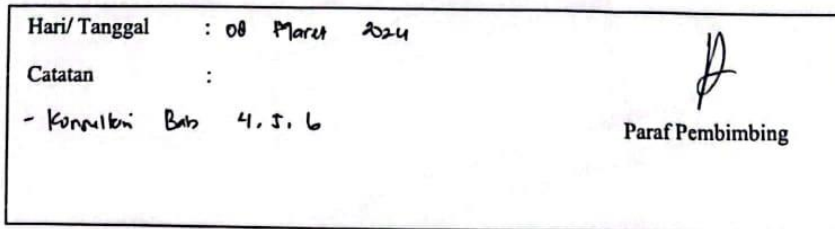 Hari/ Tanggal : 08 Maret 2024
Catatan :
- Konsultasi Bab 4. 5. 6
Paraf Pembimbing